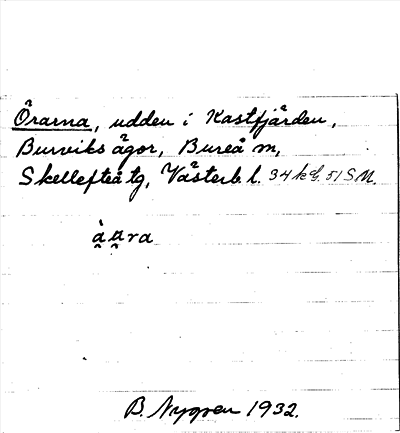 Örarna, udden i Kastfjärden,
Burviks ägor, Bureå m,
Skellefteå tg, Västerb. l. 34 k d. 51 S M.
B. Nygren 1932.